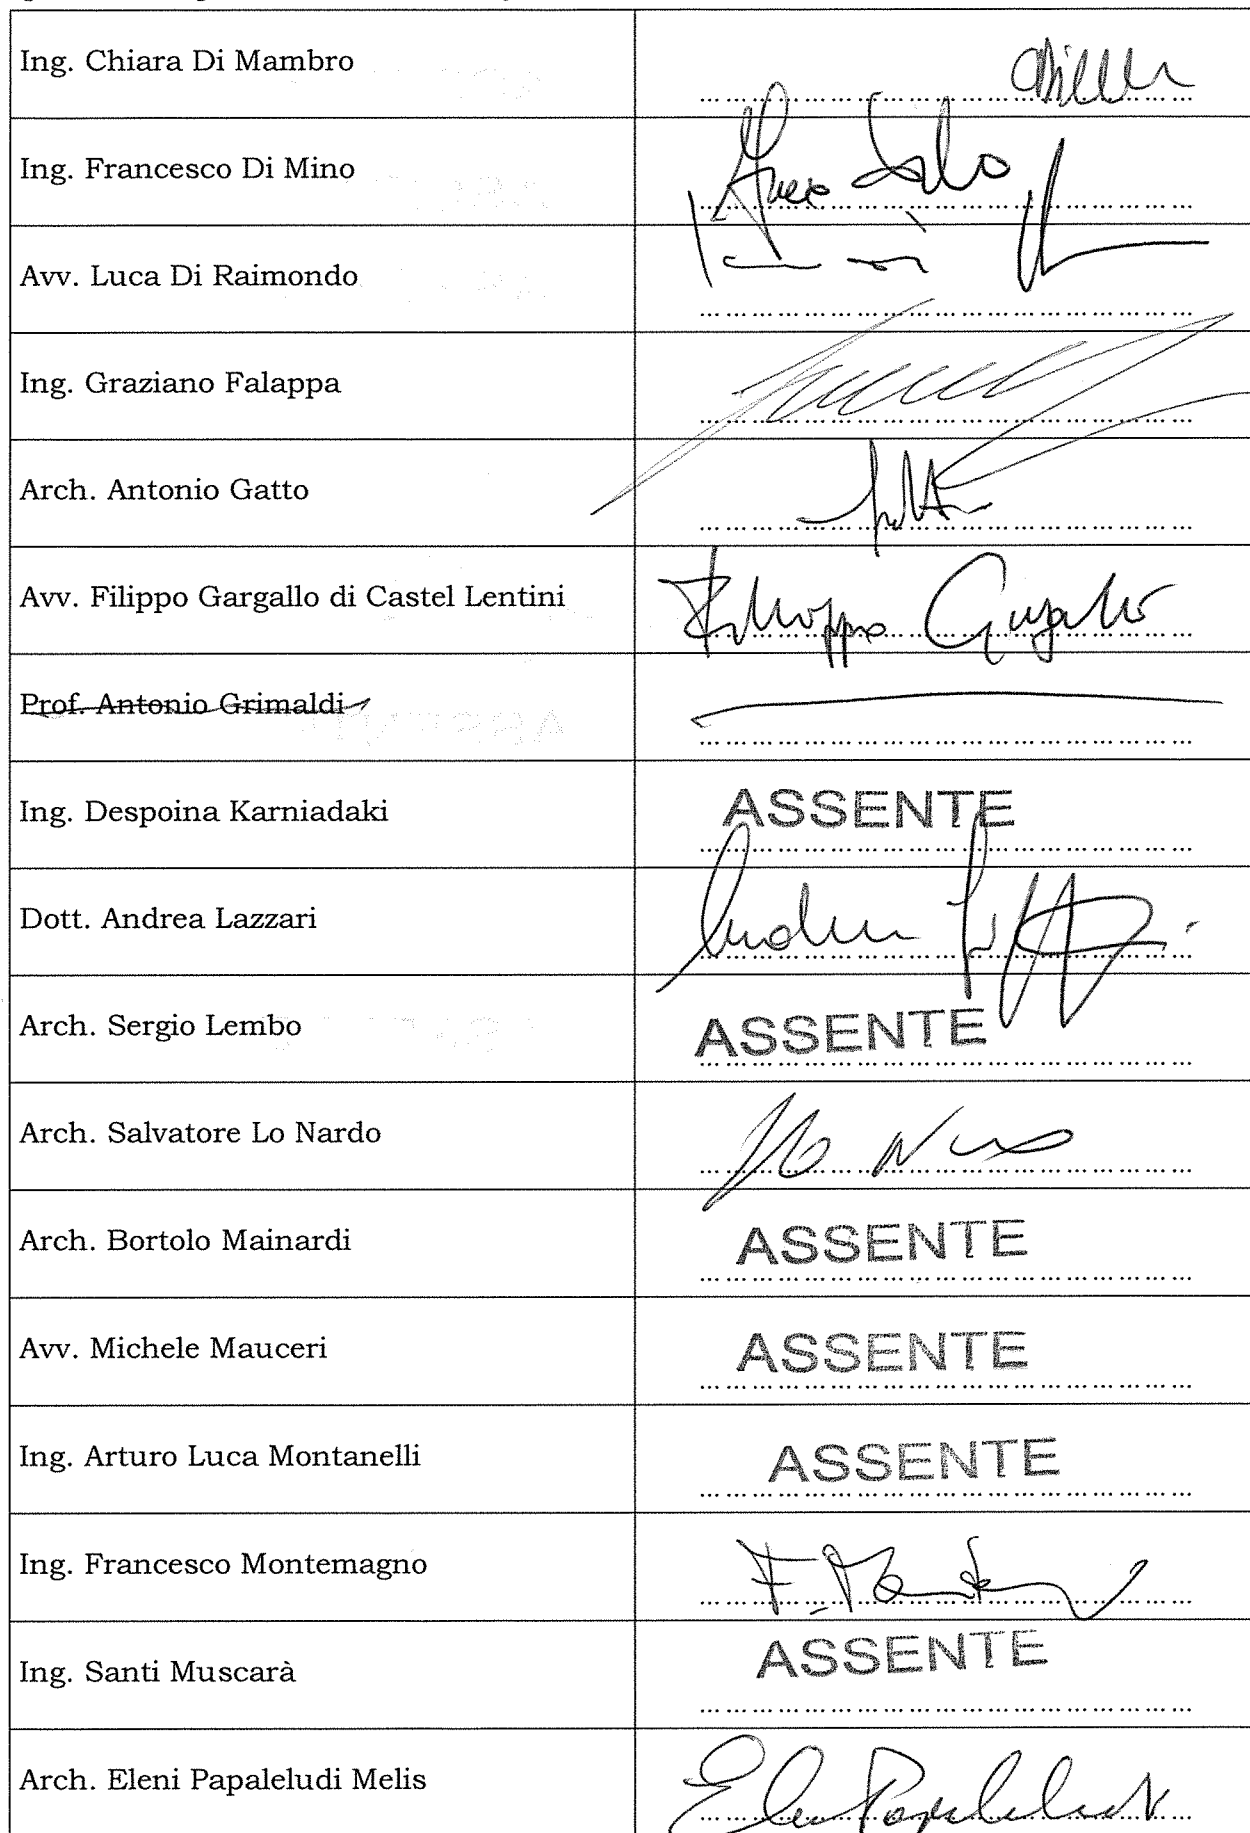 Ing. Chiara Di Mambro
Ing. Francesco Di Mino
Avv. Luca Di Raimondo
Ing. Graziano Falappa
Arch. Antonio Gatto
Avv. Filippo Gargallo di Castel Lentini
Filippo Gargallo
Prof. Antonio Grimaldi
Ing. Despoina Karniadaki
ASSENTE
Dott. Andrea Lazzari
Andrea
Arch. Sergio Lembo
ASSENTE
Arch. Salvatore Lo Nardo
Arch. Bortolo Mainardi
ASSENTE
Avv. Michele Mauceri
ASSENTE
Ing. Arturo Luca Montanelli
ASSENTE
Ing. Francesco Montemagno
Ing. Santi Muscarà
ASSENTE
Arch. Eleni Papaleludi Melis